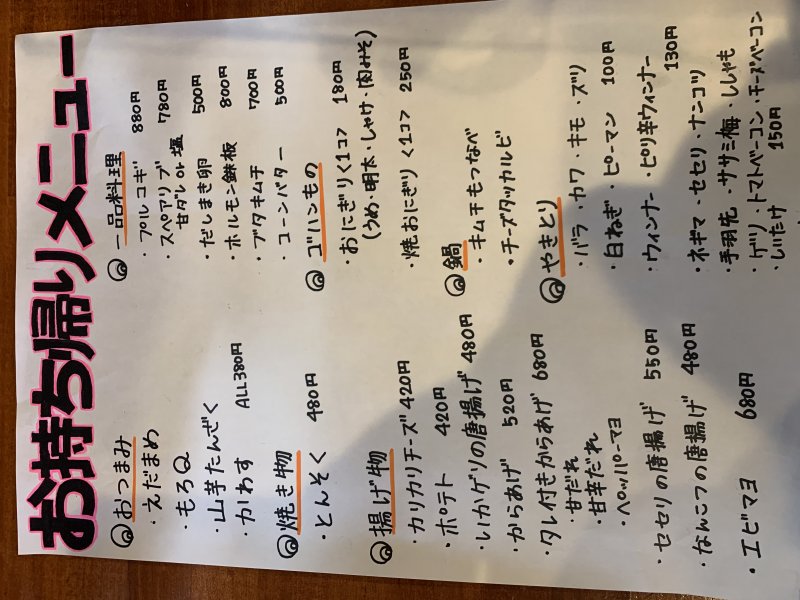 お持ち帰りメニュー
おつまみ
・えだまめ
・もろQ
・山芋たんざく
・かわす
ALL380円
焼き物
・とんそく 480円
揚げ物
・カリカリチーズ 420円
・ポテト 420円
・いかゲソの唐揚げ 480円
・からあげ 520円
・タレ付きからあげ 680円
・甘だれ
・甘辛だれ
・ペッパーマヨ
・セセリの唐揚げ 550円
・なんこつの唐揚げ 480円
・エビマヨ 680円
一品料理
・プルコギ 880円
・スペアリブ 780円
甘ダレor塩
・だしまき卵 500円
・ホルモン鉄板 800円
・ブタキムチ 700円
・コーンバター 500円
ゴハンもの
・おにぎり<1コ> 180円
(うめ・明太・しゃけ・肉みそ)
・焼おにぎり<1コ> 250円
鍋
・キムチもつなべ
・チーズタッカルビ
やきとり
・バラ・カワ・キモ・ズリ
・白ねぎ・ピーマン 100円
・ウィンナー・ピリ辛ウィンナー
130円
・ネギマ・セセリ・ナンコツ
・手羽先・ササミ梅・ししゃも
・ゲソ・トマトベーコン・チーズベーコン
・しいたけ 150円